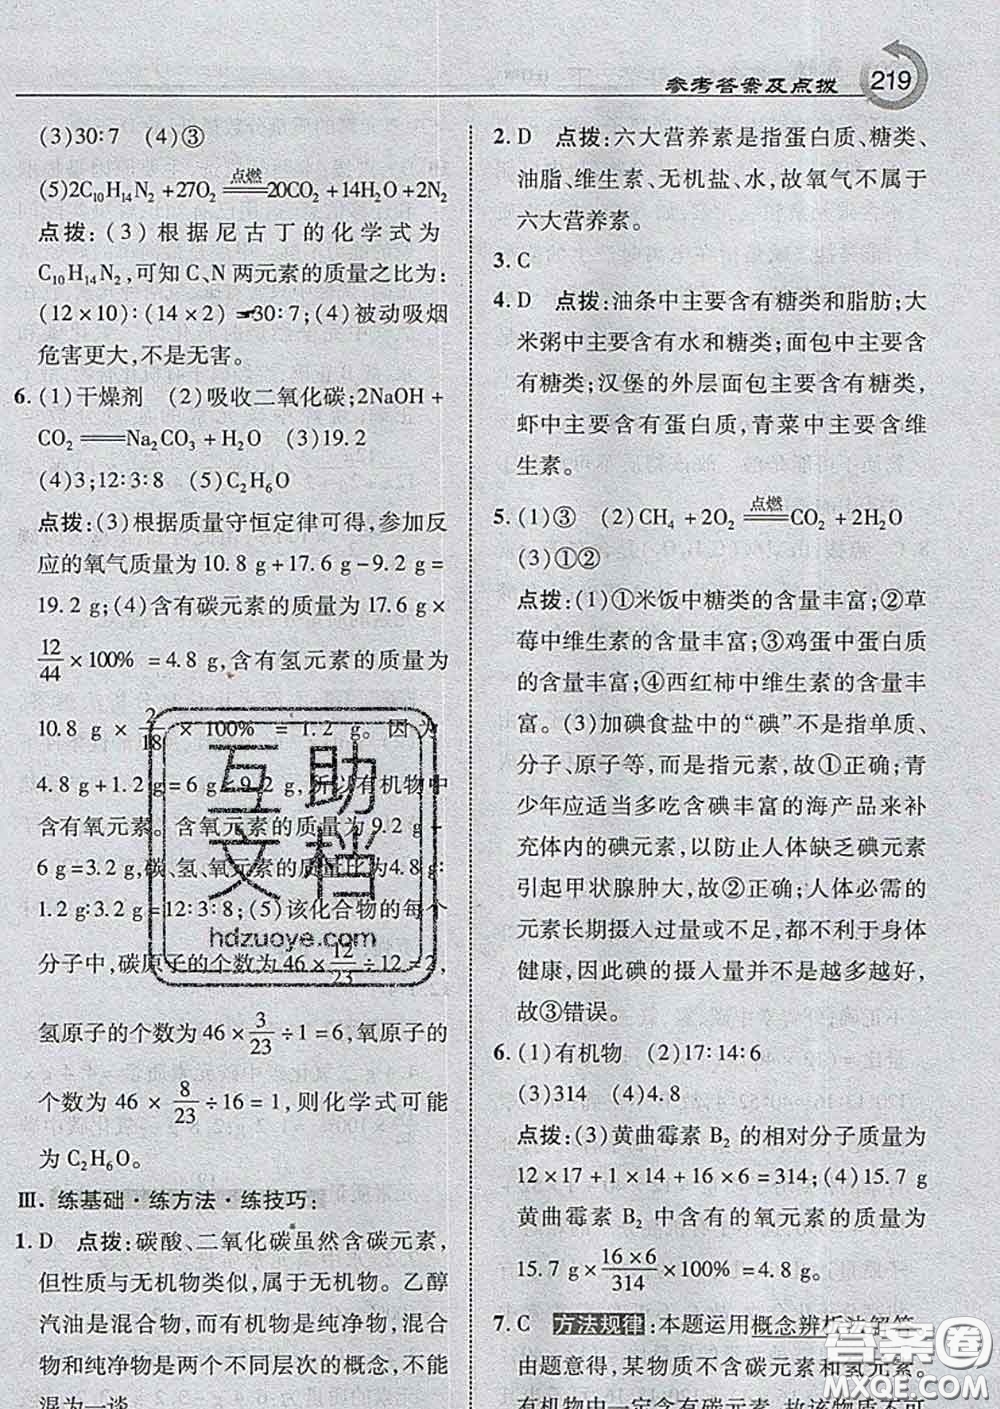 参考答案及点拨 219
(3)30∶7 (4)③
(5)2C₁₀H₁₄N₂+27O₂ 点燃 20CO₂+14H₂O+2N₂
点拨:(3)根据尼古丁的化学式为
C₁₀H₁₄N₂,可知C、N两元素的质量之比为:
(12×10)∶(14×2)=30∶7;(4)被动吸烟
危害更大,不是无害。
6. (1)干燥剂 (2)吸收二氧化碳;2NaOH+
CO₂══Na₂CO₃+H₂O (3)19.2
(4)3;12∶3∶8 (5)C₂H₆O
点拨:(3)根据质量守恒定律可得,参加反
应的氧气质量为10.8 g+17.6 g-9.2 g=
19.2 g;(4)含有碳元素的质量为17.6 g×
12/44×100% =4.8 g,含有氢元素的质量为
10.8 g × 2/18 × 100% = 1.2 g。因为
4.8 g+1.2 g=6 g<9.2 g,所以有机物中
含有氧元素。含氧元素的质量为9.2 g-
6 g=3.2 g,碳、氢、氧元素的质量比为4.8 g∶
1.2 g∶3.2 g=12∶3∶8;(5)该化合物的每个
分子中,碳原子的个数为46×12/23÷12=2,
氢原子的个数为46×3/23÷1=6,氧原子的
个数为46×8/23÷16=1,则化学式可能
为C₂H₆O。
Ⅲ. 练基础·练方法·练技巧:
1. D 点拨:碳酸、二氧化碳虽然含碳元素,
但性质与无机物类似,属于无机物。乙醇
汽油是混合物,有机物是纯净物,混合
物和纯净物是两个不同层次的概念,不能
混为一谈。
2. D 点拨:六大营养素是指蛋白质、糖类、
油脂、维生素、无机盐、水,故氧气不属于
六大营养素。
3. C
4. D 点拨:油条中主要含有糖类和脂肪;大
米粥中主要含有水和糖类;面包中主要含
有糖类;汉堡的外层面包主要含有糖类,
虾中主要含有蛋白质,青菜中主要含有维
生素。
5. (1)③ (2)CH₄+2O₂ 点燃 CO₂+2H₂O
(3)①②
点拨:(1)①米饭中糖类的含量丰富;②草
莓中维生素的含量丰富;③鸡蛋中蛋白质
的含量丰富;④西红柿中维生素的含量丰
富。(3)加碘食盐中的“碘”不是指单质、
分子、原子等,而是指元素,故①正确;青
少年应适当多吃含碘丰富的海产品来补
充体内的碘元素,以防止人体缺乏碘元素
引起甲状腺肿大,故②正确;人体必需的
元素长期摄入过量或不足,都不利于身体
健康,因此碘的摄入量并不是越多越好,
故③错误。
6. (1)有机物 (2)17∶14∶6
(3)314 (4)4.8
点拨:(3)黄曲霉素B₂的相对分子质量为
12×17+1×14+16×6=314;(4)15.7 g
黄曲霉素B₂中含有的氧元素的质量为
15.7 g×16×6/314×100%=4.8 g。
7. C 方法规律:本题运用概念辨析法解答。
由题意得,某物质不含碳元素和氢元素。
互助文档
hdzuoye.com
答案圈
MXQE.COM